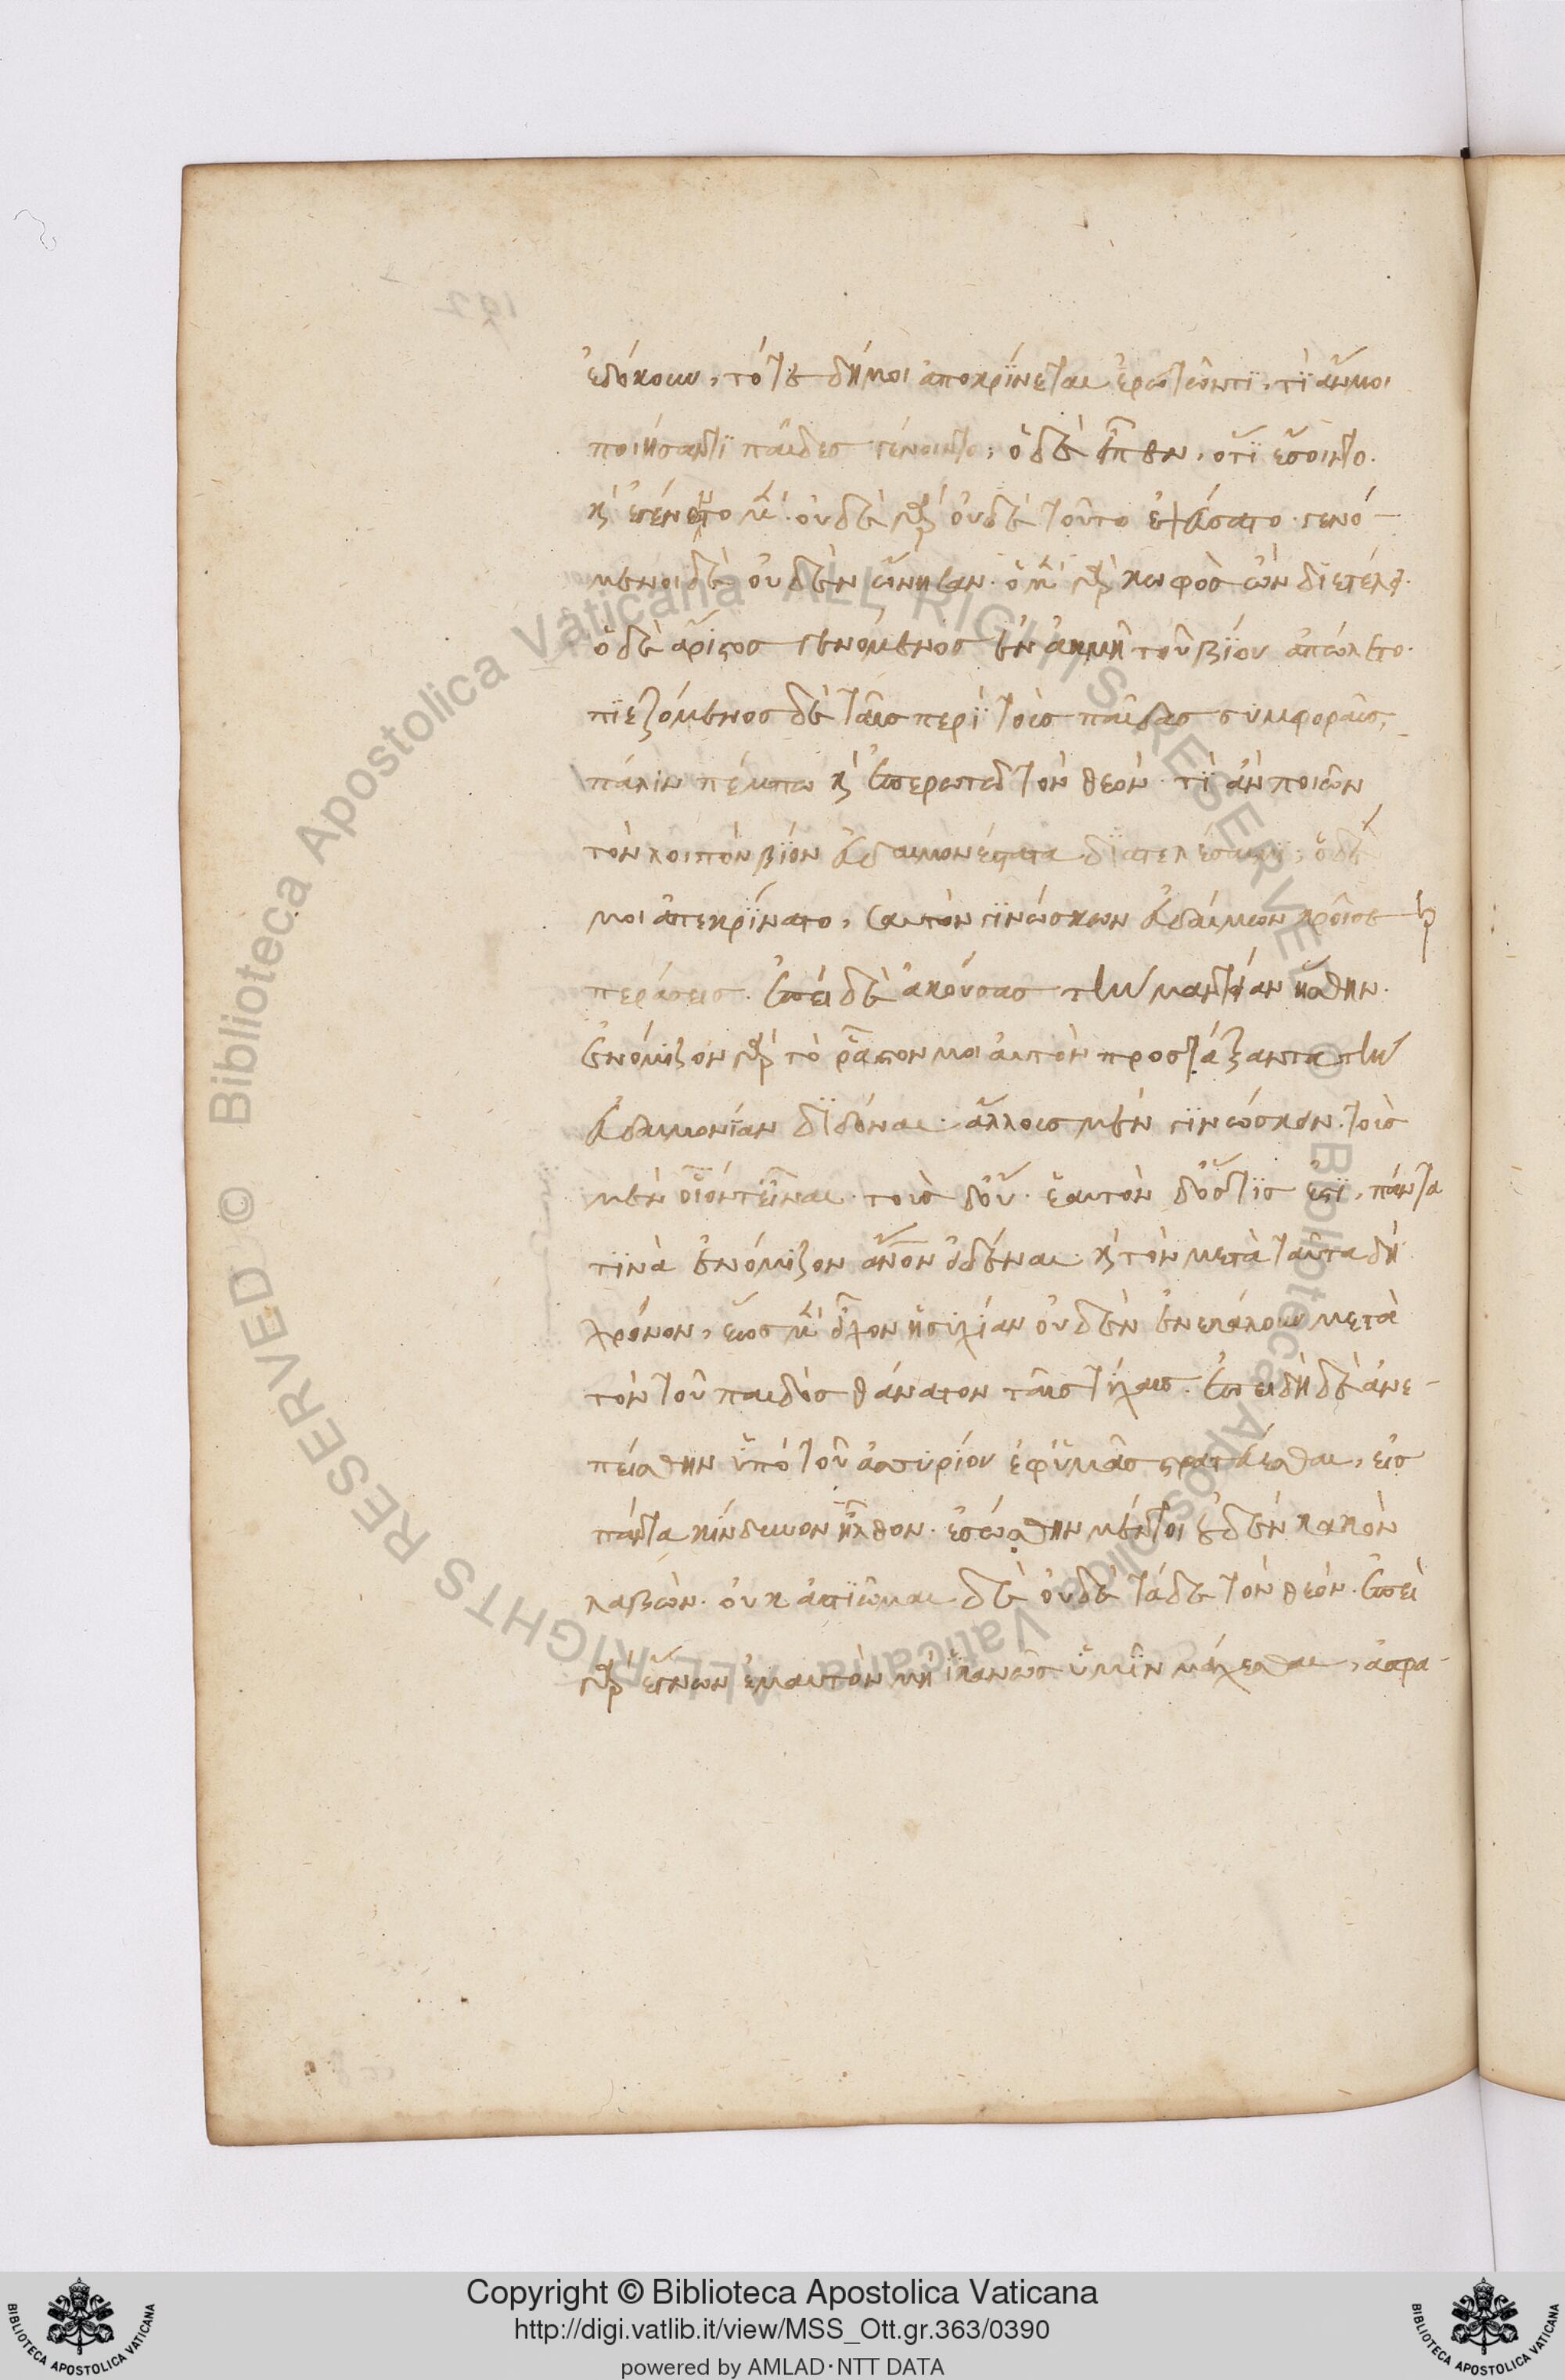 ἐδόκουν, τότε δή μοι ἀποκρίνεται ἐρωτῶντι, τί ἄν μοι
ποιήσαντι παῖδες γένοιντο; ὁ δὲ εἶπεν, ὅτι ἔσοιντο.
κ' ἐγένοντο μ(ὲν)· οὐδὲ γὰρ οὐδὲ τοῦτο ἐψεύσατο· γενό-
μενοι δὲ οὐδὲν ὤνησαν. ὁ μ(ὲν) γὰρ κωφὸς ὢν διετέλει·
ὁ δὲ ἄριστος γενόμενος ἐν ἀκμῇ τοῦ βίου ἀπώλετο.
πιεζόμενος δὲ ταῖς περὶ τοὺς παῖδας συμφοραῖς,
πάλιν πέμπω κ' ἐπερωτῶ τὸν θεὸν τί ἂν ποιῶν
τὸν λοιπὸν βίον εὐδαιμονέστατα διατελέσαιμι; ὁ δέ
μοι ἀπεκρίνατο, σαυτὸν γινώσκων εὐδαίμων κροῖσε
περάσεις. ἐγὼ δὲ ἀκούσας τὴν μαντείαν ἥσθην.
ἐνόμιζον γὰρ τὸ ῥᾷστόν μοι αὐτὸν προστάξαντα τὴν
εὐδαιμονίαν διδόναι· ἄλλους μὲν γινώσκειν. τοὺς
μὲν οἷόντ' εἶναι· τοὺς δ' οὔ· ἑαυτὸν δ' ὅστις ἐστὶ, πάντα
τινὰ ἐνόμιζον ἄνον εἰδέναι. κ' τὸν μετὰ ταῦτα δὴ
χρόνον, ἕως μ(ὲν) εἶχον ἡσυχίαν οὐδὲν ἐνεκάλουν μετὰ
τὸν τοῦ παιδὸς θάνατον ταῖς τύχαις. ἐπειδὴ δὲ ἀνε-
πείσθην ὑπὸ τοῦ ἀσσυρίου ἐφ' ὑμᾶς στρατεύεσθαι, εἰς
πάντα κίνδυνον ἦλθον. ἐσώθην μέντοι οὐδὲν κακὸν
λαβών. οὐκ αἰτιῶμαι δὲ οὐδὲ τάδε τὸν θεόν. ἐπεὶ
γὰρ ἔγνων ἐμαυτὸν μὴ ἱκανῶς ὑμῖν μάχεσθαι, ἀσφα-
Copyright © Biblioteca Apostolica Vaticana
http://digi.vatlib.it/view/MSS_Ott.gr.363/0390
powered by AMLAD·NTT DATA